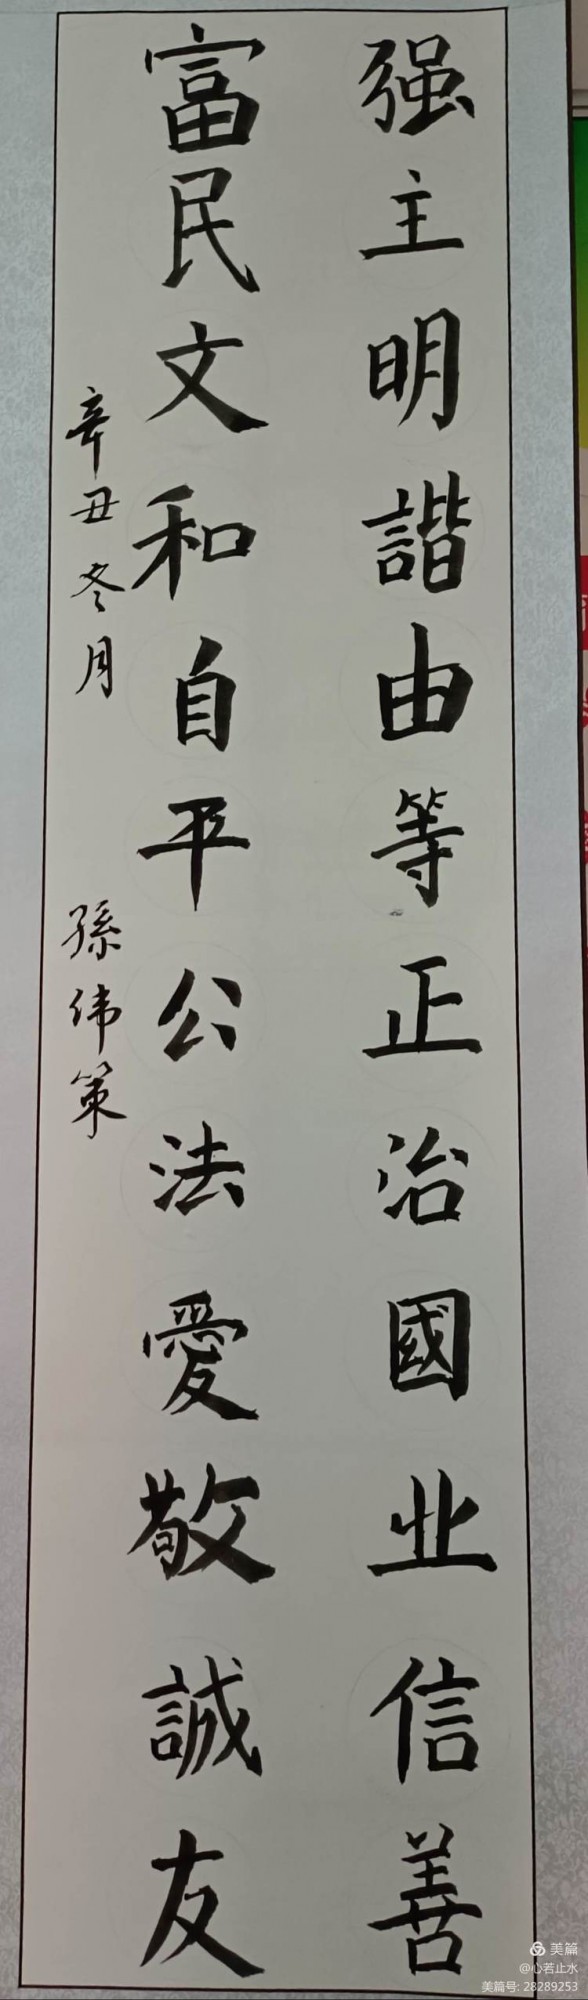 富强
民主
文明
和諧
自由
平等
公正
法治
愛國
敬业
誠信
友善
辛丑冬月 孫伟策
美篇
@心若止水
美篇号: 28289253